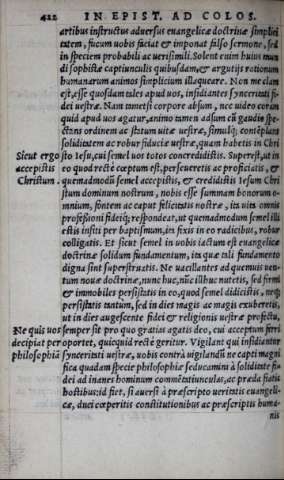 422 IN EPIST. AD COLOS.
artibus instructus aduersus euangelicæ doctrinæ simplici
tatem, fucum uobis faciat & imponat falso sermone, sed
in speciem probabili ac uerisimili. Solent enim huius mun
di sophistæ captiunculis quibusdam, & argutijs rationum
humanarum animos simplicium illaqueare. Non me clam
est, esse quosdam tales apud uos, insidiantes synceritati fi-
dei uestræ. Nam tametsi corpore absum, nec uideo coram
quid apud uos agatur, animo tamen adsum cū gaudio spe-
ctans ordinem ac statum uitæ uestræ, simulq; contēplans
soliditatem ac robur fiduciæ uestræ, quam habetis in Chri
Sicut ergo sto Iesu, cui semel uos totos concredidistis. Superest, ut in
accepistis eo quod recte cœptum est, perseueretis ac proficiatis, &
Christum. quemadmodū semel accepistis, & credidistis Iesum Chri
stum dominum nostrum, nobis esse summam bonorum o-
mnium, fontem ac caput felicitatis nostræ, ita uita omnis
professioni fideiq; respondeat, ut quemadmodum semel illi
estis insiti per baptismum, ita fixis in eo radicibus, robur
colligatis. Et sicut semel in uobis iactum est euangelicæ
doctrinæ solidum fundamentum, ita quæ tali fundamento
digna sint superstruatis. Ne uacillantes ad quemuis uen-
tum nouæ doctrinæ, nunc huc, nūc illhuc nutetis, sed firmi
& immobiles persistatis in eo, quod semel didicistis, neq;
persistatis tantum, sed in dies magis ac magis exuberetis,
ut in dies augescente fidei & religionis uestræ profectu,
Ne quis uos semper sit pro quo gratias agatis deo, cui acceptum ferri
decipiat per oportet, quicquid recte geritur. Vigilant qui insidiantur
philosophiā synceritati uestræ, uobis contrà uigilandū ne capti magni
fica quadam specie philosophiæ seducamini à soliditate fi-
dei ad inanes hominum commētatiunculas, ac præda fiatis
hostibus: id fiet, si auersi à præscripto ueritatis euangeli-
cæ, duci cœperitis constitutionibus ac præscriptis huma-
nis